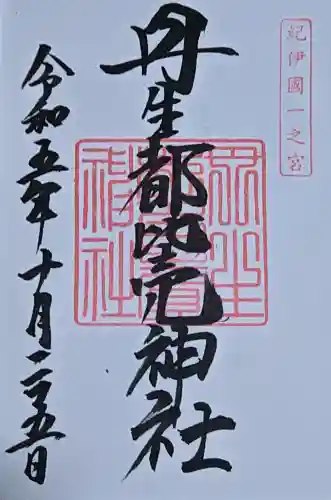 紀伊國一之宮
丹生都比売神社
令和五年十月二十五日